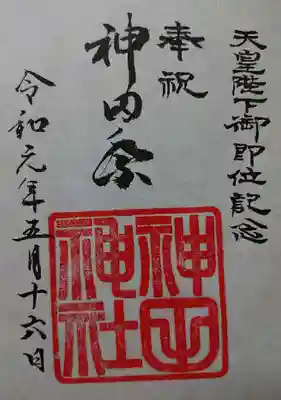 天皇陛下御即位記念
奉祝
神田祭
令和元年五月十六日
神田
神社